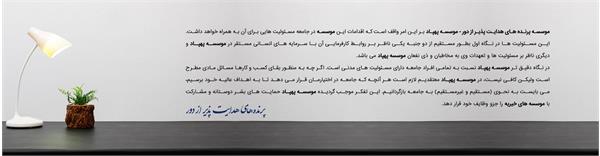 موسسه پرنده های هدایت پذیر از دور - موسسه پهپاد بر این امر واقف است که اقدامات این موسسه در جامعه مسئولیت هایی برای آن به همراه خواهد داشت.
این مسئولیت ها در نگاه اول بطور مستقیم از دو جنبه یکی ناظر بر روابط کارفرمایی آن با سرمایه های انسانی مستقر در موسسه پهپاد و
دیگری ناظر بر مسئولیت ها و تعهدات وی به مخاطبان و ذی نفعان موسسه پهپاد می باشد.
در نگاه دقیق تر موسسه پهپاد نسبت به تمامی افراد جامعه دارای مسئولیت های مدنی است. اگر چه به منظور بقای کسب و کارها مسائل مادی مطرح
است ولیکن کافی نیست، در موسسه پهپاد معتقدیم لازم است هر آنچه که جامعه در اختیارمان قرار می دهد تا به اهداف عالیه خود برسیم،
می بایست به نحوی (مستقیم و غیرمستقیم) به جامعه بازگردانیم. این تفکر موجب گردیده موسسه پهپاد حمایت های بشر دوستانه و مشارکت
با موسسه های خیریه را جزو وظایف خود قرار دهد.
پرنده های هدایت پذیر از دور